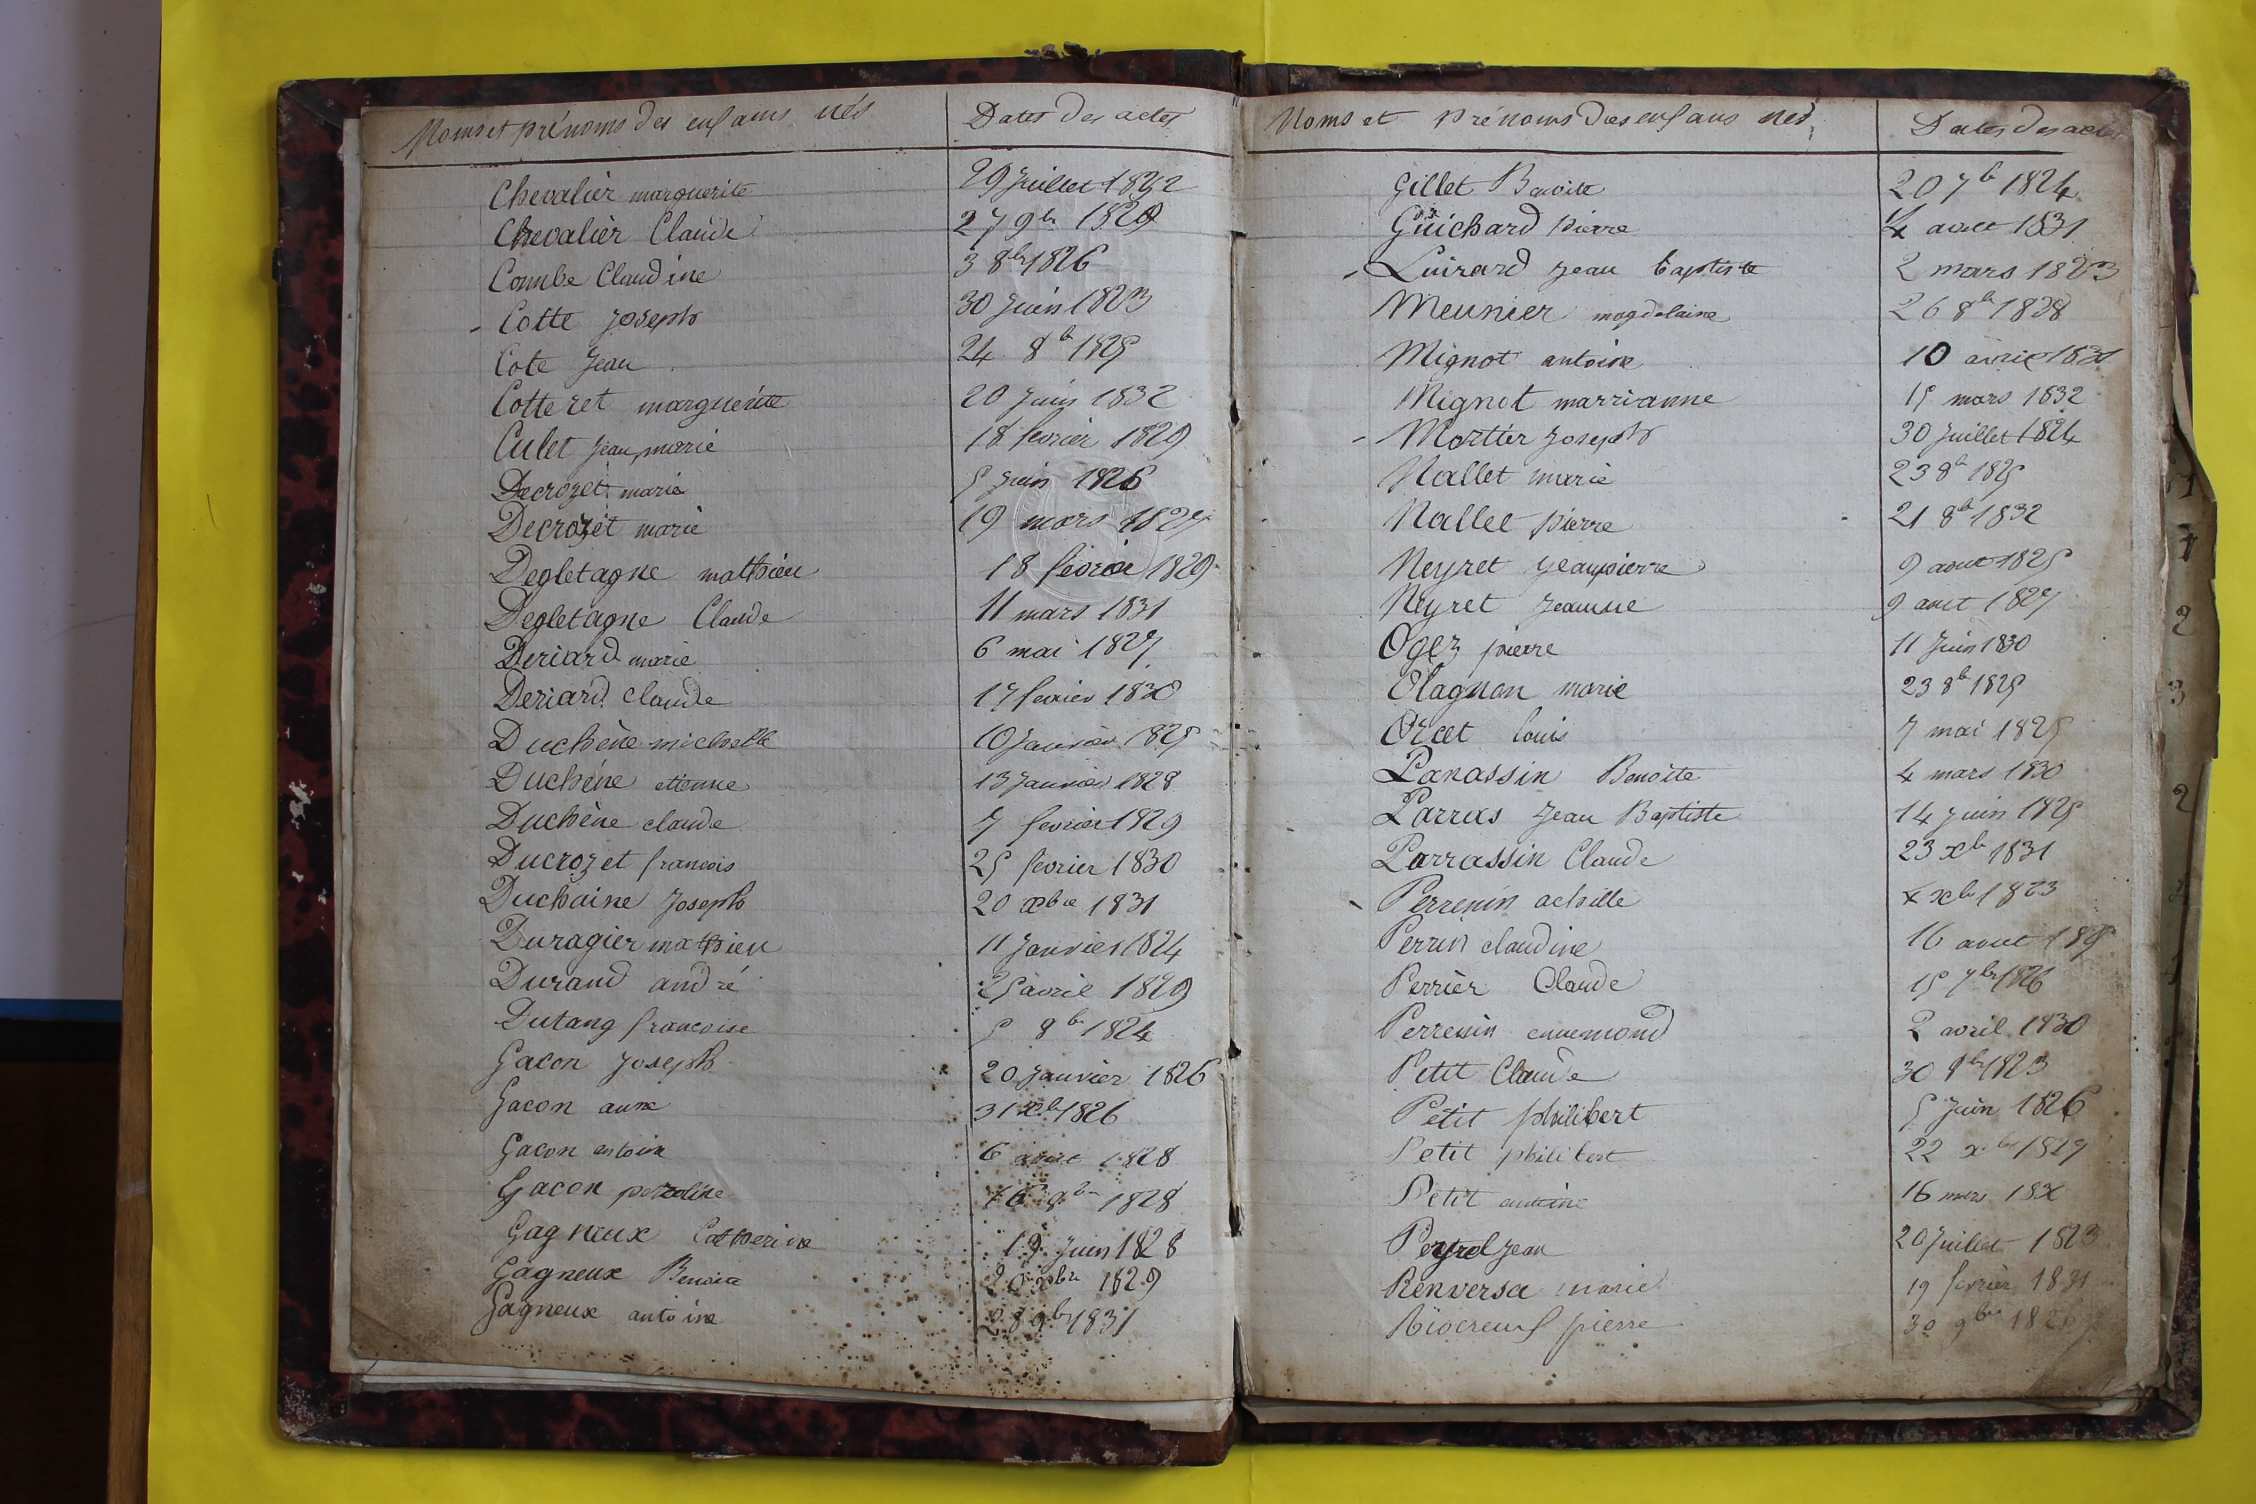 Noms et prénoms des enfans nés
Dates des actes
Chevalier marguerite 29 Juillet 1832
Chevalier Claude 27 9bre 1829
Combe Claudine 3 8bre 1826
Cotte Joseph 30 Juin 1823
Cote Jean 24 8b 1825
Cotteret marguerite 20 Juin 1832
Culet Jean marie 18 fevrier 1829
Decrozet marie 5 Juin 1826
Decrozet marie 19 mars 1827
Degletagne mathieu 18 fevrier 1829
Degletagne Claude 11 mars 1831
Deriard marie 6 mai 1827
Deriard Claude 17 fevrier 1830
Duchène michelle 10 Janvier 1825
Duchène etienne 13 Janvier 1828
Duchène claude 7 fevrier 1829
Ducrozet francois 25 fevrier 1830
Duchaine Joseph 20 xbre 1831
Duragier mathieu 11 Janvier 1824
Durand andré 25 avril 1829
Dutang francoise 5 8bre 1824
Gacon Joseph 20 Janvier 1826
Gacon anne 31 xb 1826
Gacon antoine 6 1828
Gacon 16 1828
Gagneux Catherine 19 Juin 1828
Gagneux Benoit xbre 1829
Gagneux antoine 28 9b 1831
Noms et prénoms des enfans nés
Dates des actes
Gillet Benoite 20 7b 1824
Guichard pierre 4 aout 1831
Luirard Jean baptiste 2 mars 1823
Meunier magdelaine 26 8b 1828
Mignot antoine 10 avril
Mignot marrianne 15 mars 1832
Mortier Joseph 30 Juillet 1824
Nallet marie 23 8b 1825
Nallet pierre 21 8b 1832
Neyret Jeanpierre 9 aout 1825
Neyret Jeanne 9 aout 1827
Ogez pierre 11 Juin 1830
Olagnon marie 23 8b 1825
Orcet louis 7 mai 1825
Panassin Benoite 4 mars 1830
Parras Jean Baptiste 14 Juin 1825
Parrassin Claude 23 xb 1831
Perrenin achille 4 xb 1823
Perrin claudine 16 aout
Perrier Claude 15 7bre 1826
Perrenin ennemond 2 avril 1830
Petit Claude 30 1823
Petit philibert 5 Juin 1826
Petit philibert 22 xbre 1827
Petit antoine 16 mars
Peyrol Jean 20 Juillet 1823
Renversa marie 19 fevrier 1831
Riocreuf pierre 30 9bre